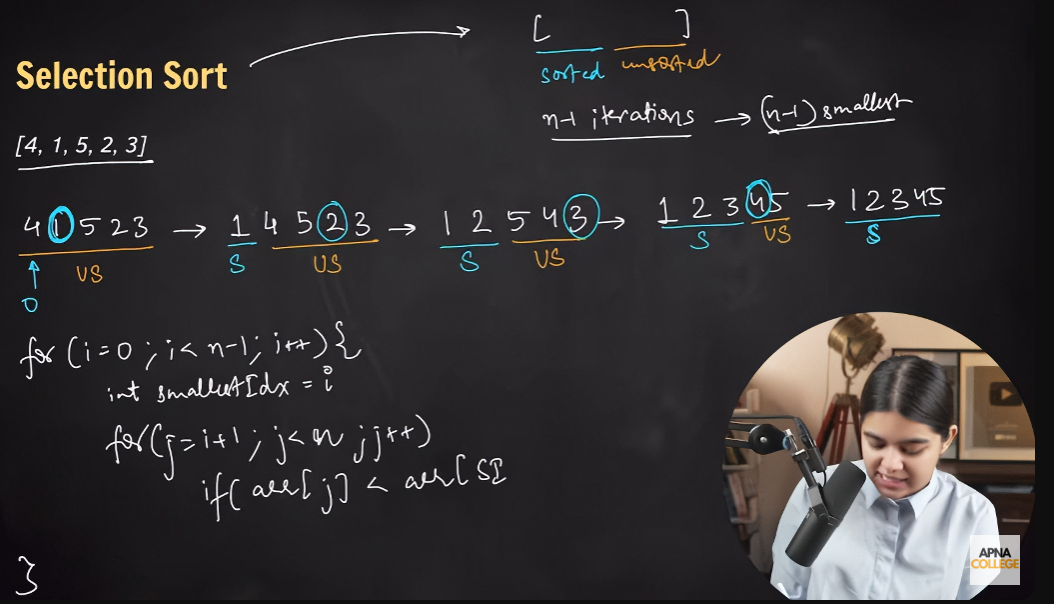 [ ]
sorted unsorted
Selection Sort
n-1 iterations → (n-1) smallest
[4, 1, 5, 2, 3]
4 1 5 2 3 → 1 4 5 2 3 → 1 2 5 4 3 → 1 2 3 4 5 → 1 2 3 4 5
US S US S US S US S
0
for (i=0 ; i< n-1; i++) {
int smallestIdx = i
for(j=i+1 ; j<n ; j++)
if( arr[j] < arr[SI
}
APNA
COLLEGE